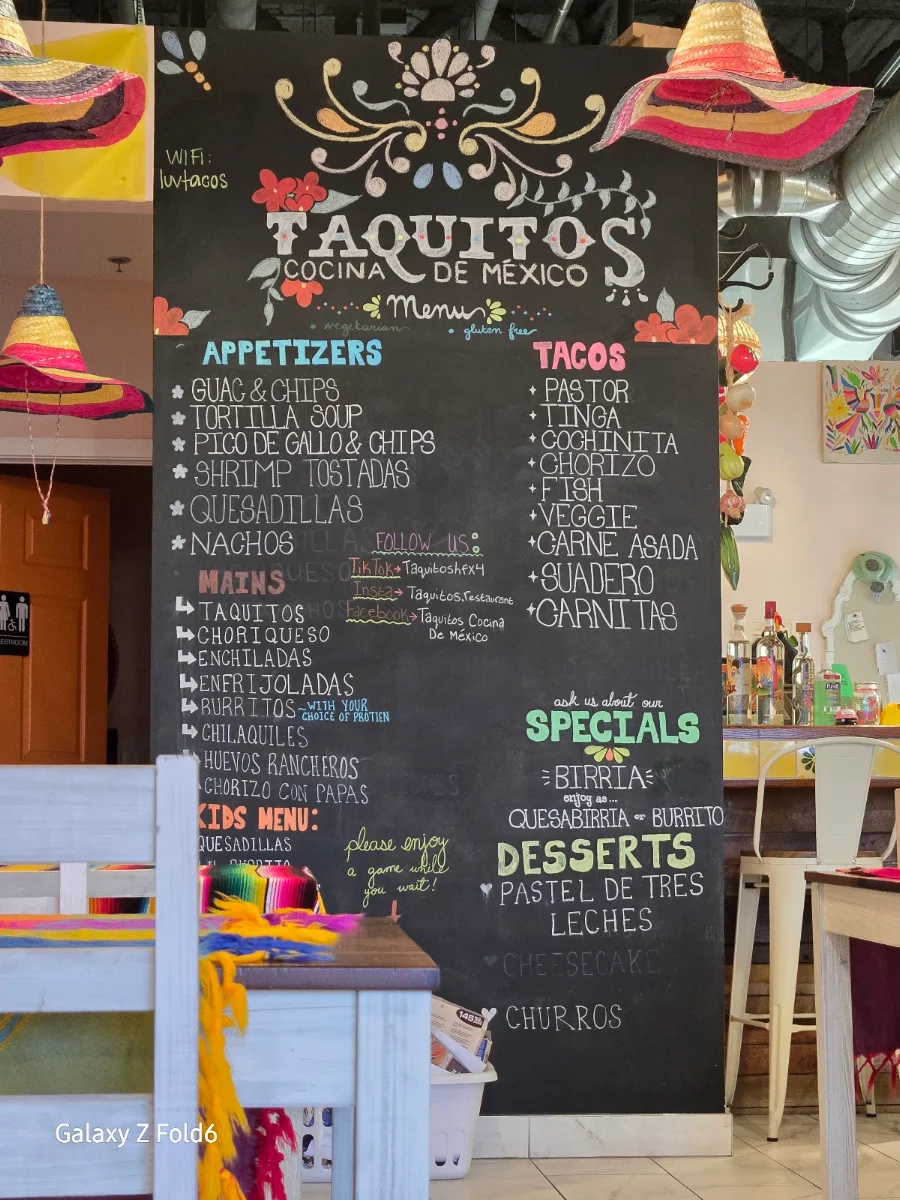 WIFI:
luvtacos
TAQUITOS
COCINA DE MÉXICO
Menu
• vegetarian
• gluten free
APPETIZERS
GUAC & CHIPS
TORTILLA SOUP
PICO DE GALLO & CHIPS
SHRIMP TOSTADAS
QUESADILLAS
NACHOS
FOLLOW US:
TikTok → Taquitoshfx4
Insta → Taquitos.restaurant
Facebook → Taquitos Cocina
De México
MAINS
TAQUITOS
CHORIQUESO
ENCHILADAS
ENFRIJOLADAS
BURRITOS ~ WITH YOUR
CHOICE OF PROTIEN
CHILAQUILES
HUEVOS RANCHEROS
CHORIZO CON PAPAS
KIDS MENU:
QUESADILLAS
BURRITO
please enjoy
a game while
you wait!
TACOS
PASTOR
TINGA
COCHINITA
CHORIZO
FISH
VEGGIE
CARNE ASADA
SUADERO
CARNITAS
ask us about our
SPECIALS
BIRRIA
enjoy as...
QUESABIRRIA or BURRITO
DESSERTS
PASTEL DE TRES
LECHES
CHEESECAKE
CHURROS
RESTROOM
145
Galaxy Z Fold6